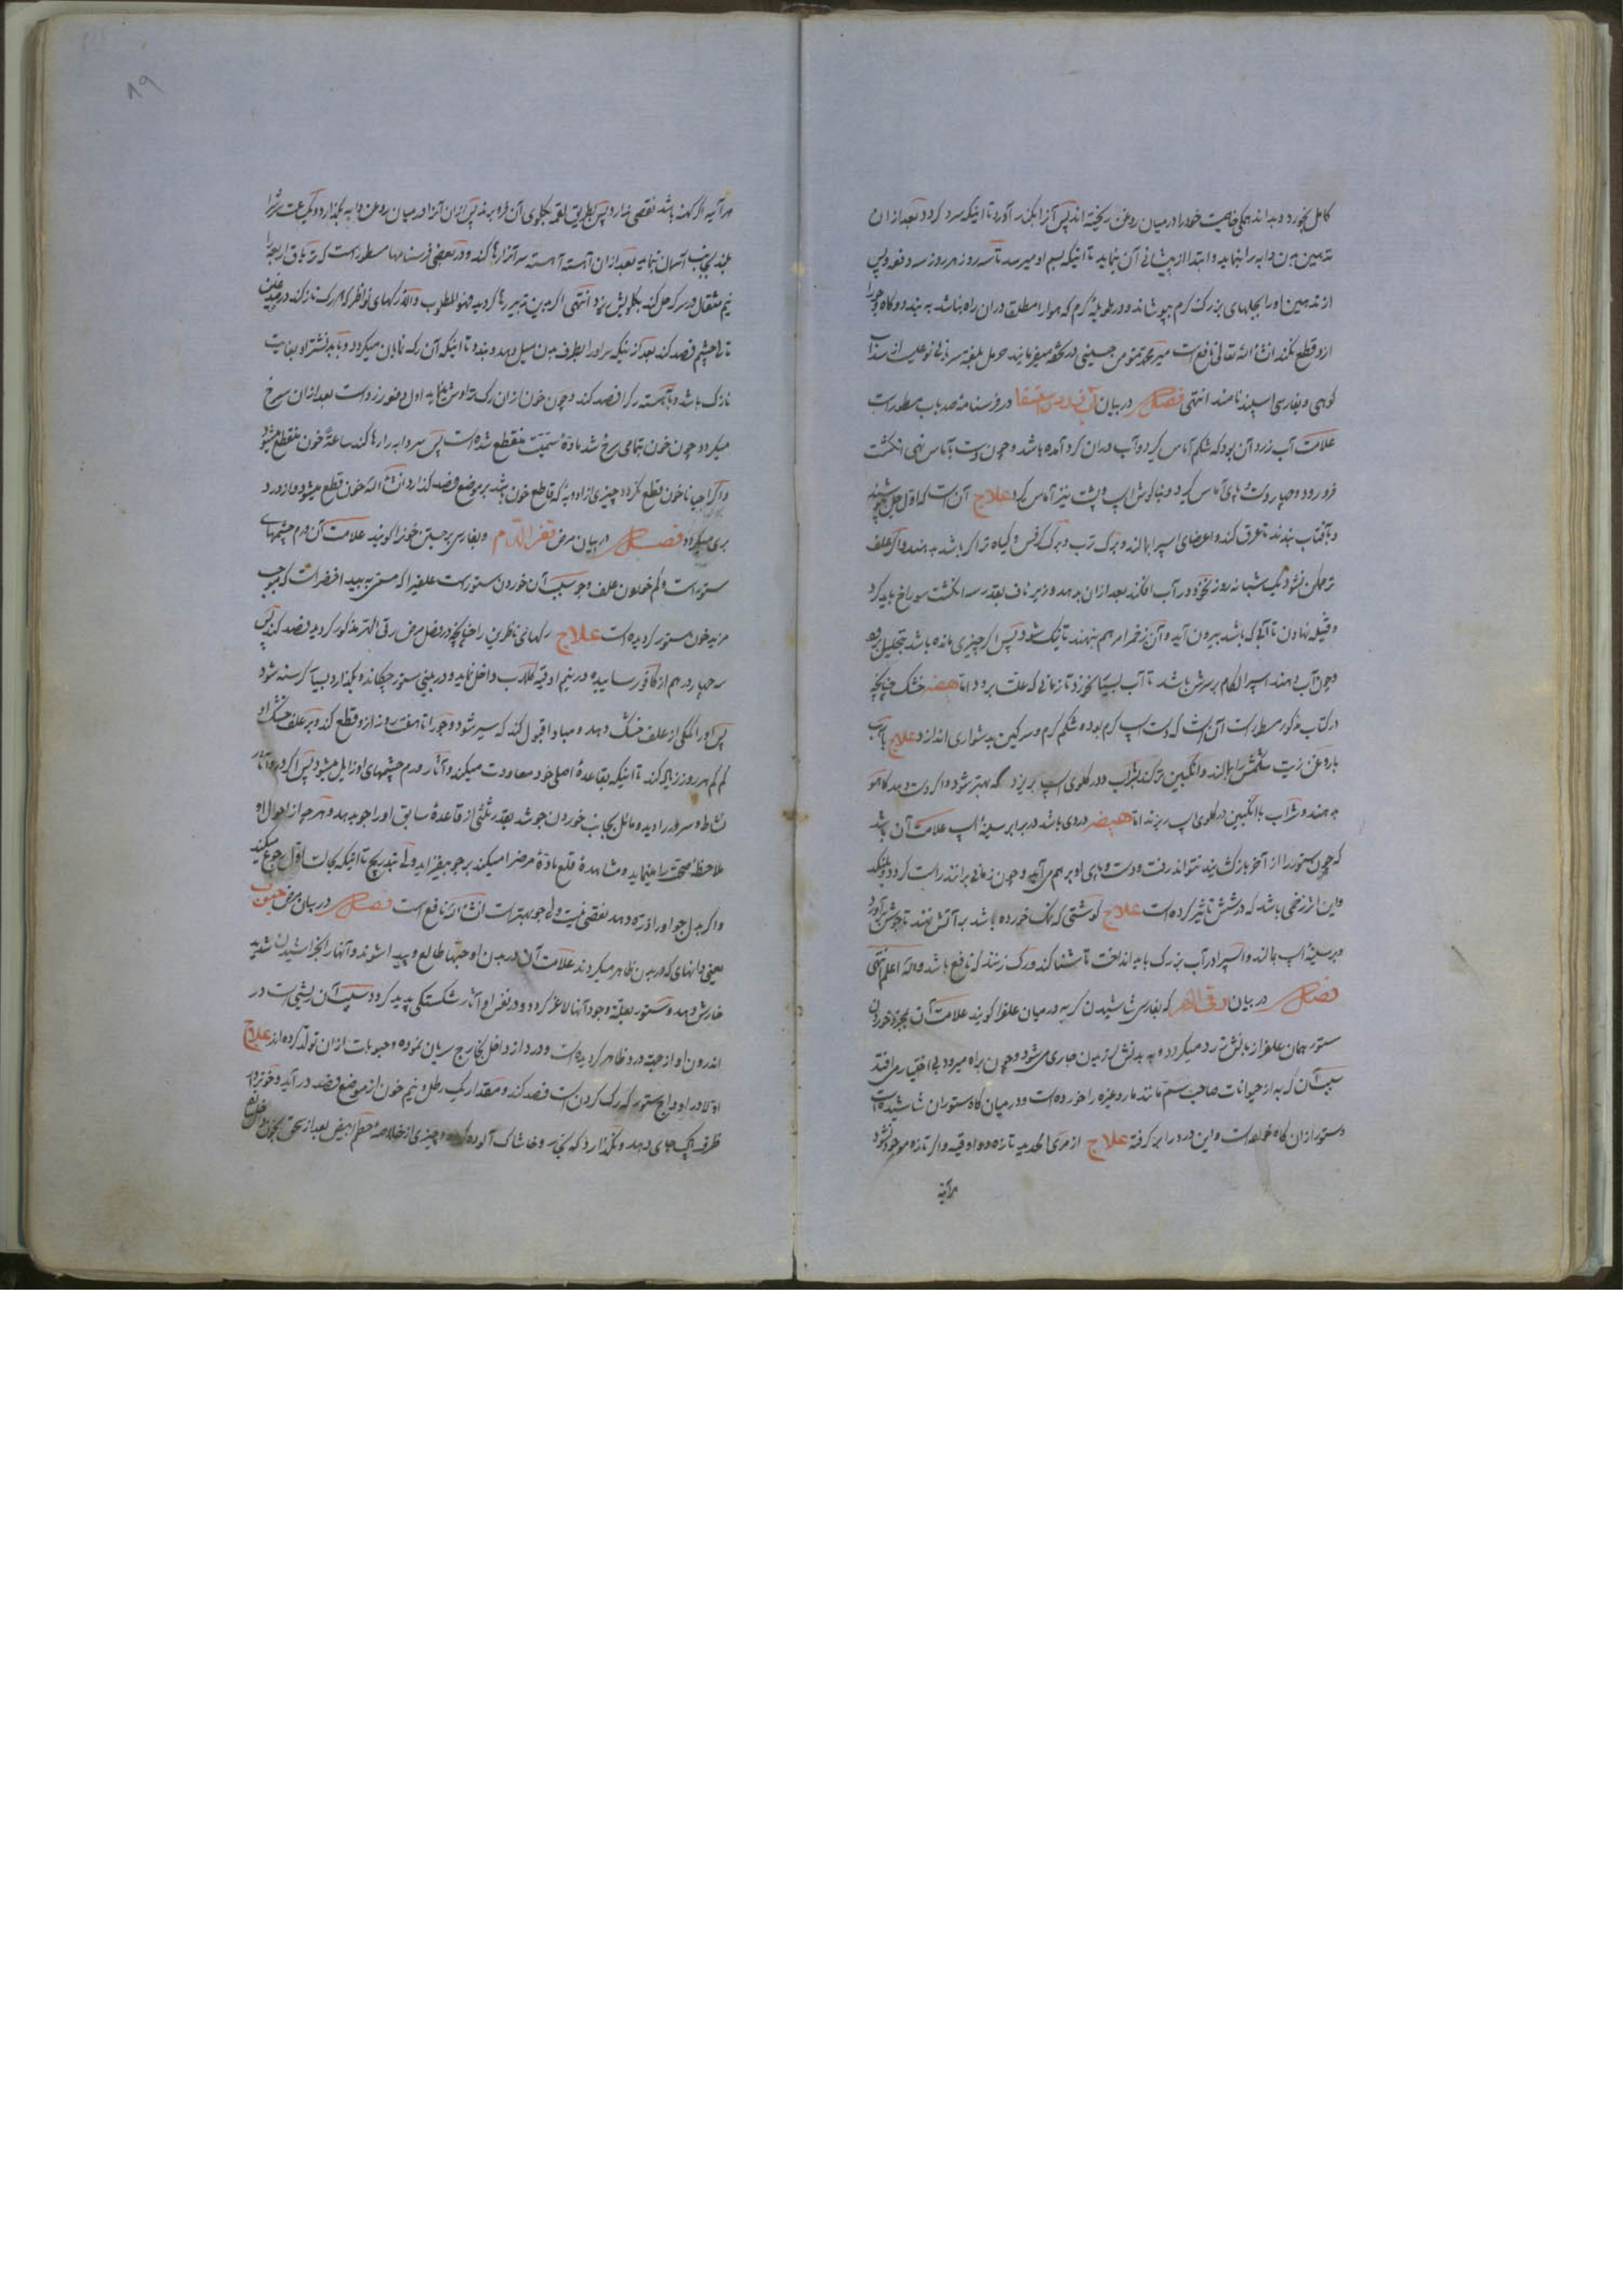 کامل بخورد و بداند همگی خاصیت خود را در میان روغن ریخته‌اند پس آنرا بکنار آورد تا اینکه سرد گردد بعد از آن
تدهین بدن دابه را بنماید و ابتدا از پیشانی آن بنماید تا اینکه بسم او میرسد تا سه روز هر روز سه دفعه و پس
از تدهین او را بجلهای بزرگ گرم بپوشاند و در طویلهٔ گرم که هوا را مطلقا در آن راه نباشد به بندد و کاه و جو را
ازو قطع نکند انشاء الله تعالی نافع است میر محمد حسینی در تحفه میفرمایند حرمل بلغة سریانی نوعیست از سذاب
کوهی و بفارسی اسپند نامند انتهی فصل در بیان در فرسنامهٔ صد باب مسطور است
علامت آب زرد آن بود که شکم آماس گیرد و آب در آن گرد آمده باشد و چون دست بآماس نهی انگشت
فرو رود و چهار دست و پای آماس گیرد و بناگوش اسپ و پشت نیز آماس گیرد علاج آن است که اول جل بپوشند
و بآفتاب بندند تا عرق کند و اعضای اسپ را بمالند و برگ ترب و برگ کرفس و گیاه تر اگر باشد بدهند و اگر علف
تر ممکن نشود یک شبانه روز نخود در آب افکند بعد از آن بدهد و زیر ناف بقدر سه انگشت سوراخ باید کرد
و فتیله نهادن تا آبی که باشد بیرون آید و آن زخم را مرهم بنهند تا نیک شود پس اگر چیزی مانده باشد بتحلیل رود
و چون آب دهند اسپ را لگام بر سرش باشد تا آب بسیار نخورد تا زمانی که علت برود اما هیضه خشک چنانچه
در کتاب مذکور مسطور است آن است که دست اسپ گرم بود و شکم گرم و سرگین بدشواری اندازد علاج باید
با روغن زیت شکمش را بمالند و انگبین تر کند بشراب و در گلوی اسپ بریزد که بهتر شود و اگر دست دهد کاهو
بدهند و شراب با انگبین در گلوی اسپ ریزند اما هیضه دردی باشد در برابر سینهٔ اسپ علامت آن باشد
که چون ستور را از آخر بازکشند نتواند رفت و دست و پای او بر هم می‌آید و چون زمانی برانند راست گردد
و این اثر زخمی باشد که در شش تاثیر کرده است علاج گوشتی که نمک خورده باشد بر آتش نهند تا جوش برآورد
و بر سینهٔ اسپ بمالند و اسپ را در آب بزرگ باید انداخت تا شنا کند و رگ زنند که نافع باشد والله اعلم انتهی
فصل در بیان که بفارسی شاشیدن گربه در میان علف را گویند علامت آن بمجرد خوردن
ستور همان علف را از بالش ترد میگردد و پیه بدانش از بدن جاری میشود و چون براه میرود بی اختیار می افتد
سبب آن گربه از حیوانات صاحب سم مانند مار و غیره را خورده است و در میان کاه ستوران شاشیده است
و ستور از آن کاه خورده است و این درد را بر گرفته علاج از مرئ الحدیه تازه ده و اوقیه و اگر تازه موجود نشود
هرآینه
هرآینه اگر کهنه باشد نقصی ندارد پس بطریق لقمه بگلوی آن فرو برند پس از آن آنرا در میان روغن دابه بگذارد و یکساعت سرش را
بلند بجانب آسمان نماید بعد از آن آهسته آهسته سر آنرا رها کند و در بعضی فرسنامها مسطور است که تریاق اربعه را
نیم مثقال در سرکه حل کند بگلویش ریزد انتهی اگر بدین تدبیر رها گردید فهو المطلوب والا رگهای نواظر که دو رگ نازکند در
تا چشم فصد کند بعد از اینکه سر او را بطرف بدن میل دهد و بندد تا اینکه آن رگ نمایان میگردد و باید نشتر او بغایت
نازک باشد و بآهسته رگ را فصد کند و چون خون از آن رگ تراوش نماید اول دفعه زرد است بعد از آن سرخ
میگردد چون خون بتمامی سرخ شد مادهٔ سمیت منقطع شده است پس سر دابه را رها کند ساعة خون منقطع میشود
و اگر احیانا خون قطع نگردد چیزی از ادویه که قاطع خون باشد بر موضع فصد گذارد انشاء الله خون قطع میشود و از درد
بری میگردد فصل در بیان مرض و بفارسی برجستن خون را گویند علامت آن ورم چشمهای
ستور است و کم خوردن علف و جو سبب آن خوردن ستور است علفی را که مستی به بید اخضر است که موجب
مزید خون ستور گردیده است علاج رگهای ناظرین را چنانچه در فصل مرض رقی الهر مذکور گردید فصد کند پس
سه چهار درهم از کافور سائیده در نیم اوقیه گلاب داخل نماید و در بینی ستور چکانده بگذارد بسیار گرسنه شود
پس او را اندکی از علف خشک دهد و مبادا قبول کند که سیر شود و جو را تا هفت روز ازو قطع کند و بر علف خشک او
کم کم هر روز زیاد کند تا اینکه بقاعدهٔ اصلی خود معاودت میکند و آثار ورم چشمهای او زایل میشود پس اگر در او آثار
نشاط و سرور را دید و مائل بجانب خوردن جو شد بقدر ثلثی از قاعدهٔ سابق او را جو بدهد و هر چه از احوال او
ملاحظهٔ صحت را مینماید و مشاهدهٔ قلع مادهٔ مرض را میکند بر جو میفزاید ولی بتدریج تا اینکه بحالت اول رجوع میکند
و اگر بدل جو او را ذره دهد نقصی نیست ولی جو بهتر است انشاء الله نافع است فصل در بیان مرض حبوب
یعنی دانهای که در بدن ظاهر میگردند علامت آن در بدن او حبها طالع و پیدا شوند و آنها را بخراشیدن شدید
خارش دهد و ستور بعلة وجود آنها لاغر گردد و در نفس او آثار شکستگی پدید گردد سبب آن ریشی است در
اندرون او از جهة درد ظاهر گردیده است و درد از داخل بخارج سریان نموده و حبوبات از آن تولد کرده‌اند علاج
اولا در اوداج ستور که رگ گردن است فصد کند و مقدار یک رطل و نیم خون از موضع فصد در آید و خون را در
ظرف پاک جای دهد و نگذارد که بخار و خاشاک آلوده گردد و چیزی از خلاصهٔ حطم ابیض بعد از سحق بخون داخل
۸۹